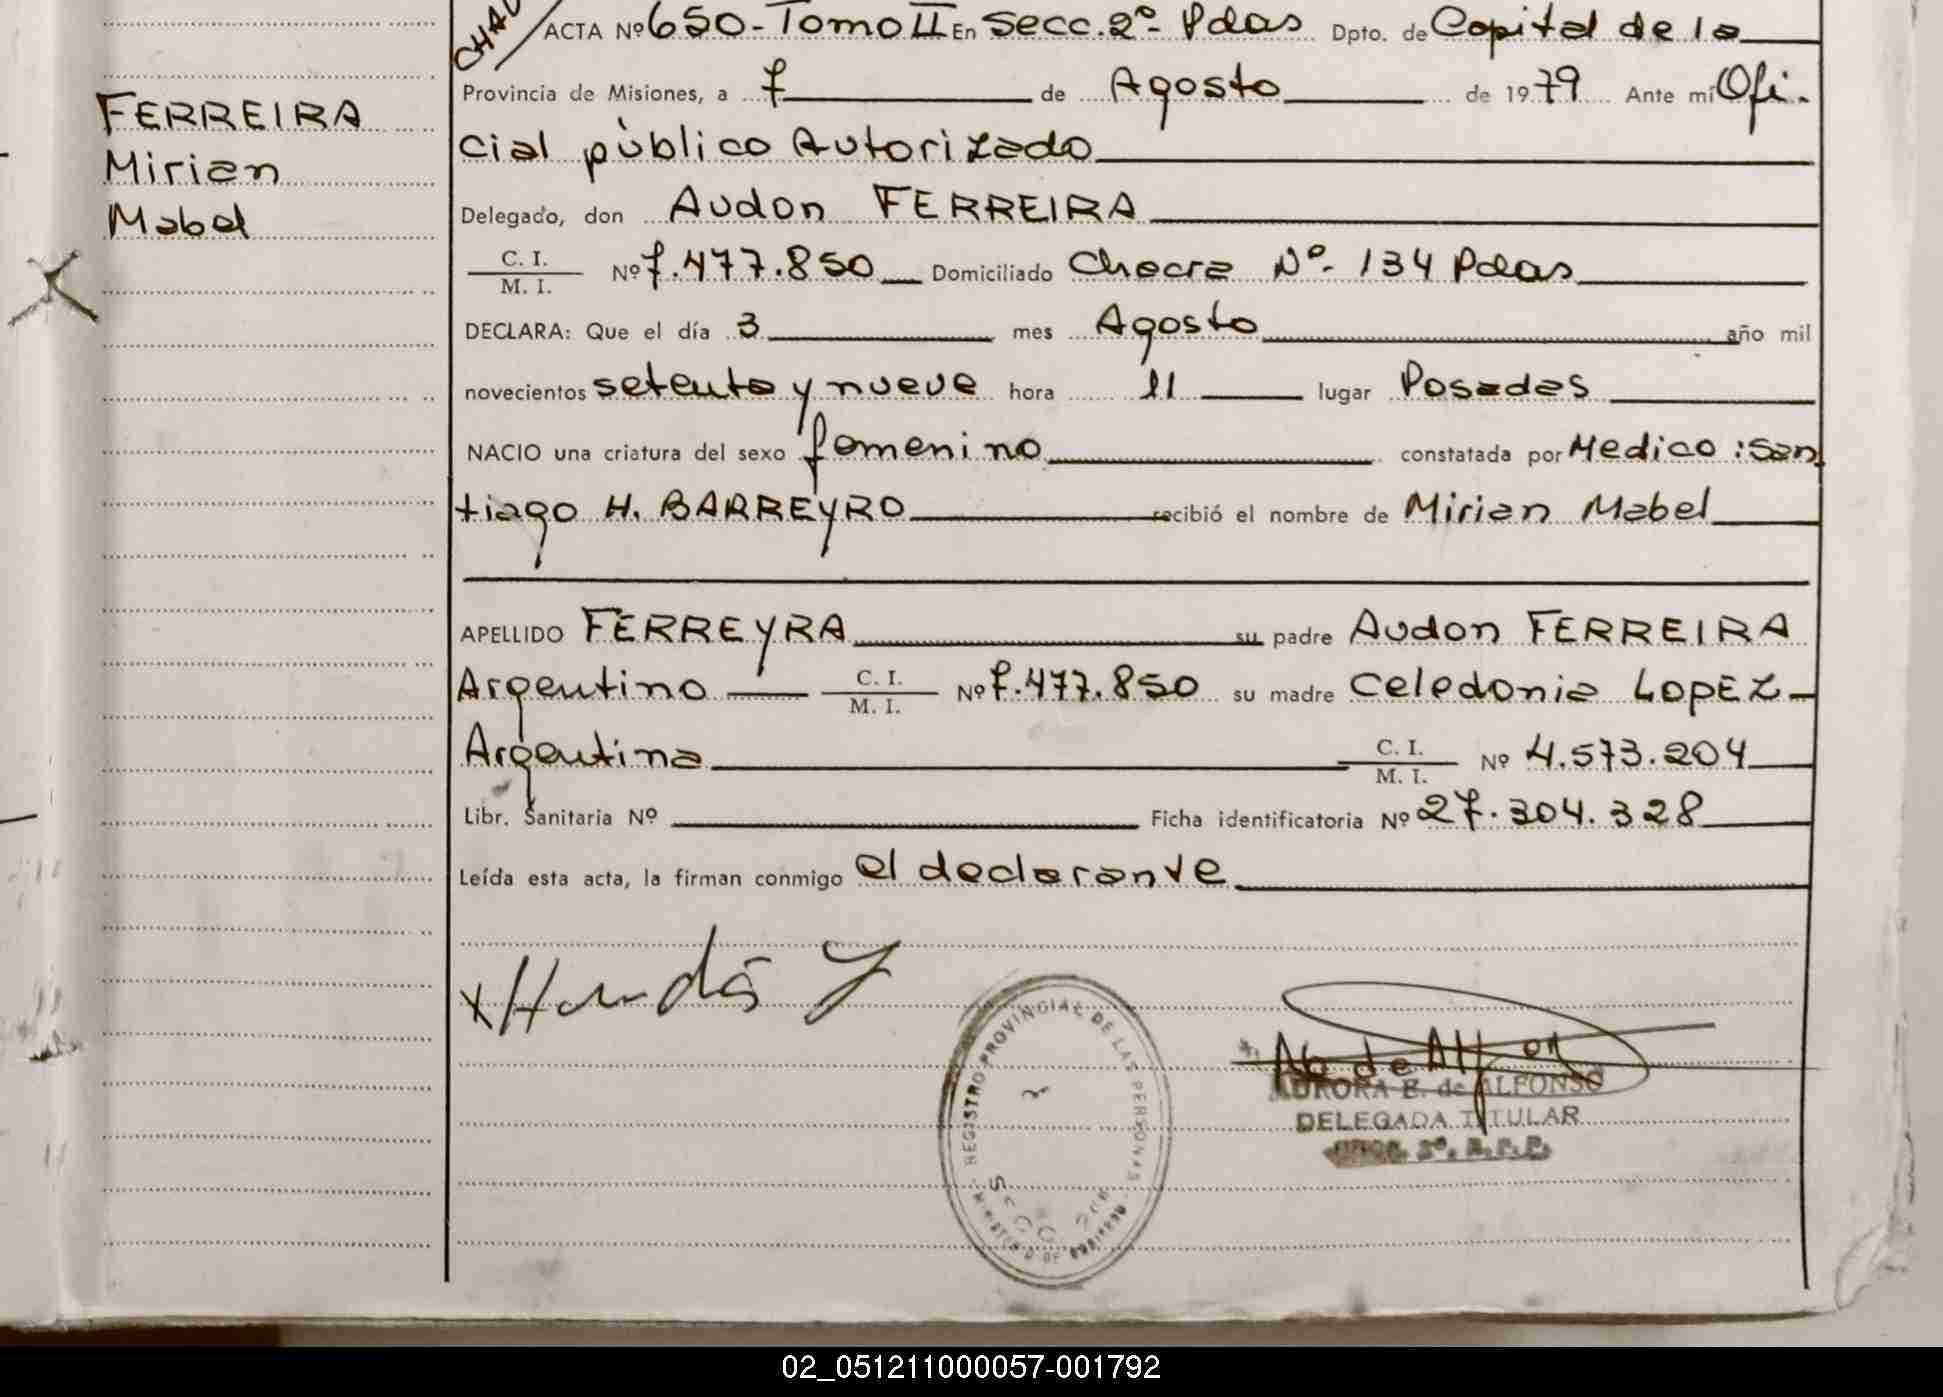 ACTA Nº 650 - Tomo II En Secc. 2º - Pdas Dpto. de Capital de la
Provincia de Misiones, a 7 de Agosto de 1979 Ante mí Ofi-
cial público Autorizado
Delegado, don Audon FERREIRA
C. I. / M. I. Nº 7.477.850 Domiciliado Chacra Nº - 134 Pdas
DECLARA: Que el día 3 mes Agosto año mil
novecientos setenta y nueve hora 11 lugar Posadas
NACIO una criatura del sexo femenino constatada por Medico: San
tiago H. BARREYRO recibió el nombre de Mirian Mabel
APELLIDO FERREYRA su padre Audon FERREIRA
Argentino C. I. / M. I. Nº 7.477.850 su madre Celedonia LOPEZ -
Argentina C. I. / M. I. Nº 4.573.204
Libr. Sanitaria Nº Ficha identificatoria Nº 27.304.328
Leída esta acta, la firman conmigo el declarante
FERREIRA
Mirian
Mabel
REGISTRO PROVINCIAL DE LAS PERSONAS
MINISTERIO DE GOBIERNO
SECC 2da
AURORA E. de ALFONSO
DELEGADA TITULAR
02_051211000057-001792